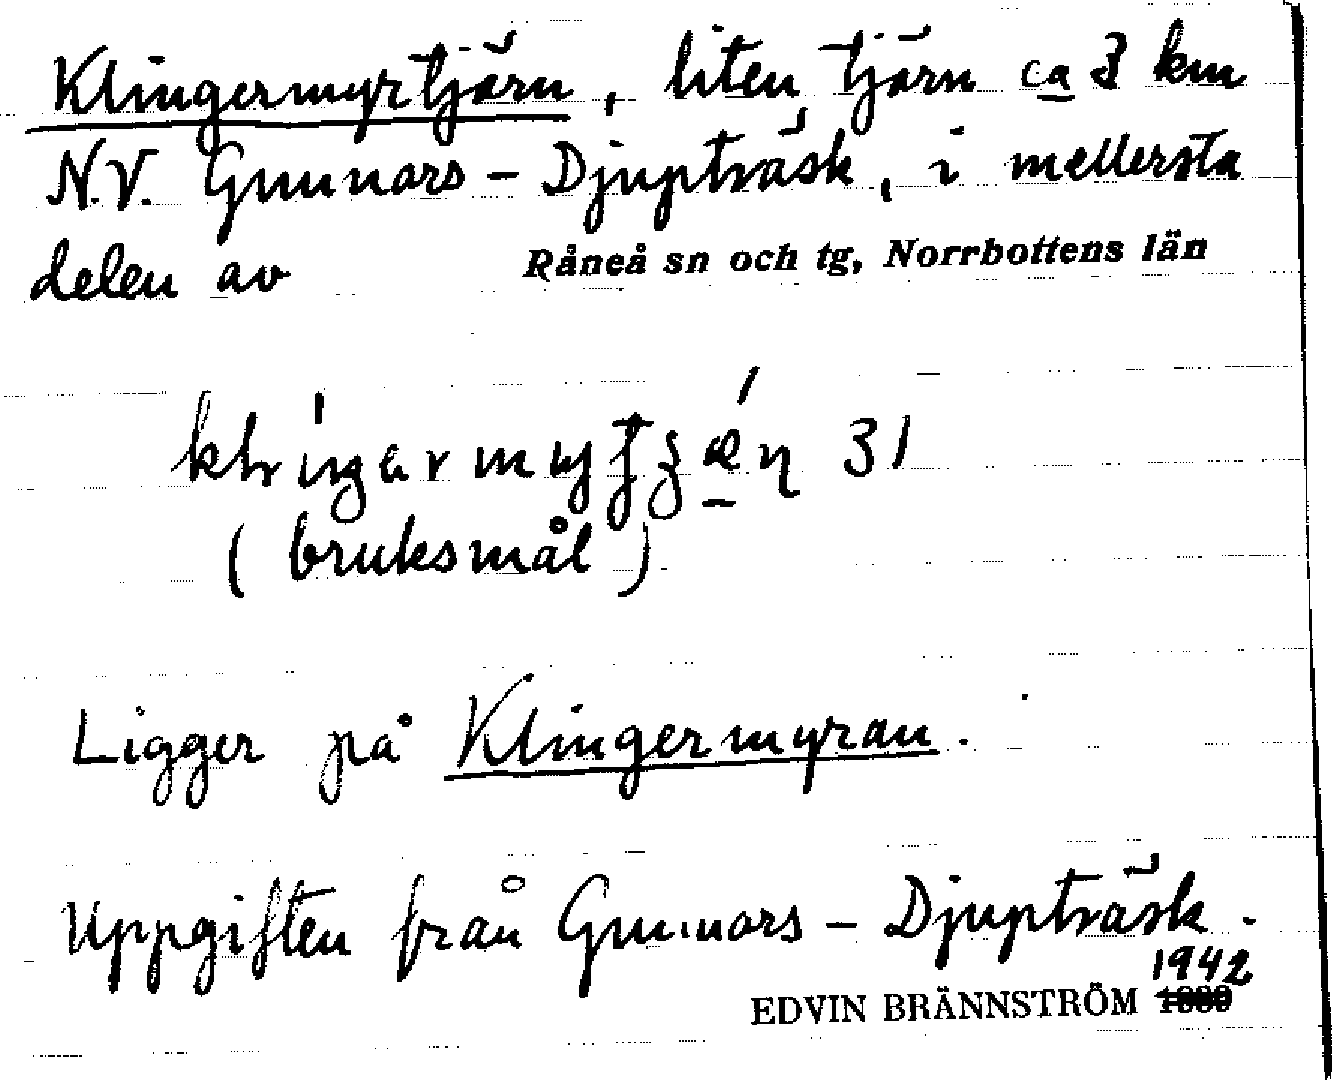 Klingermyrtjärn, liten tjärn ca 3 km
N.V. Gunnars-Djupträsk, i mellersta
delen av Råneå sn och tg, Norrbottens län
31
(bruksmål)
Ligger på Klingermyran.
Uppgiften från Gunnars-Djupträsk.
1942
EDVIN BRÄNNSTRÖM